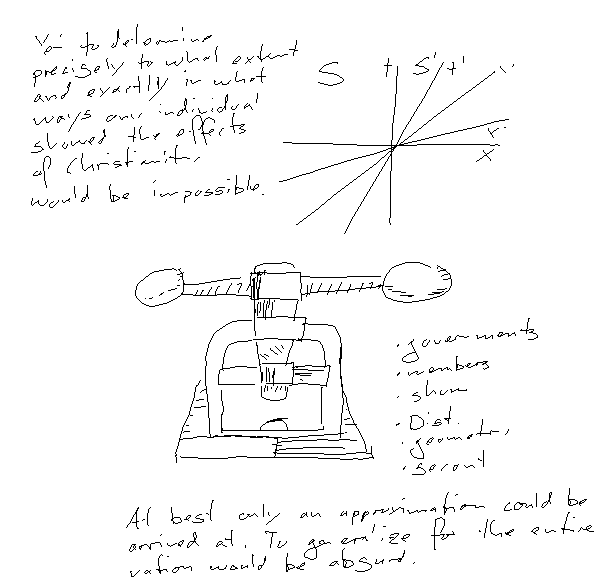 Yet to determine
precisely to what extent
and exactly in what
ways any individual
showed the effects
of Christianity
would be impossible.
S t S' t'
x'
x
• governments
• members
• show
• Dist.
• geometry
• second
At best only an approximation could be
arrived at. To generalize for the entire
nation would be absurd.